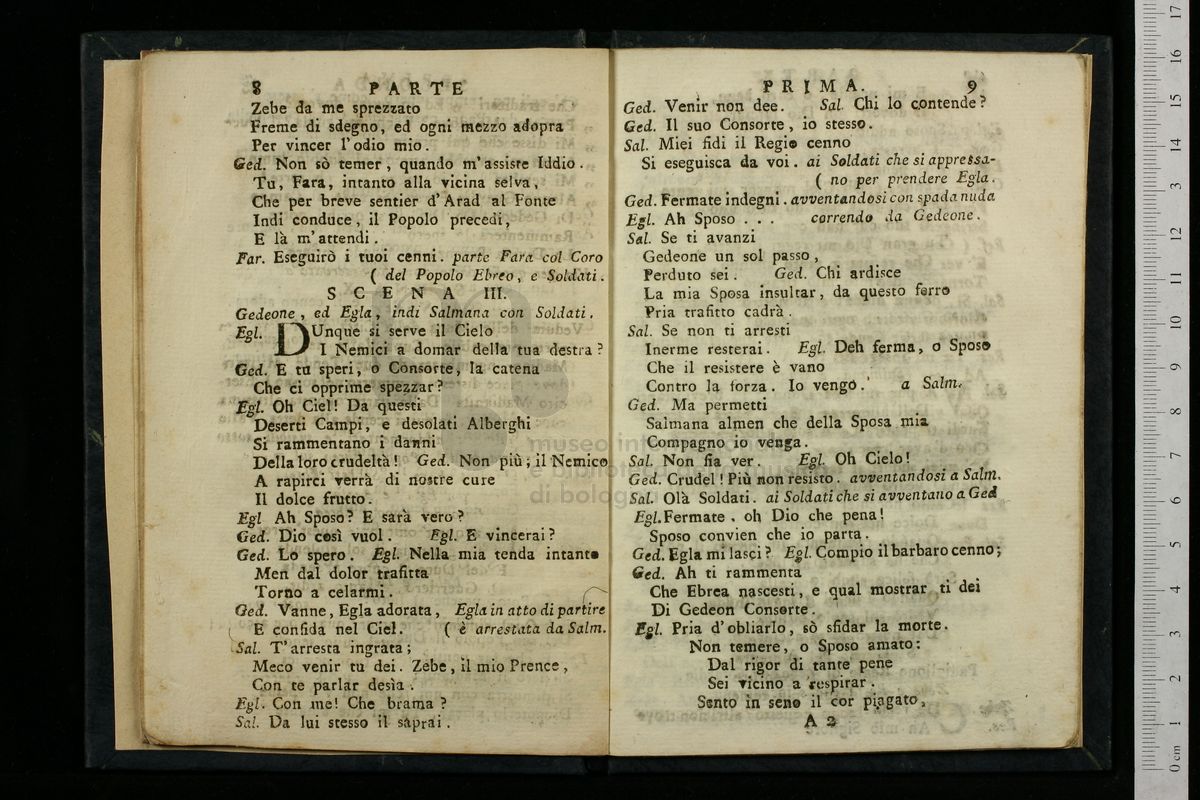 8 PARTE
Zebe da me sprezzato
Freme di sdegno, ed ogni mezzo adopra
Per vincer l'odio mio.
Ged. Non sò temer, quando m'assiste Iddio.
Tu, Fara, intanto alla vicina selva,
Che per breve sentier d'Arad al Fonte
Indi conduce, il Popolo precedi,
E là m'attendi.
Far. Eseguirò i tuoi cenni. parte Fara col Coro
( del Popolo Ebreo, e Soldati.
SCENA III.
Gedeone, ed Egla, indi Salmana con Soldati.
Egl. DUnque si serve il Cielo
I Nemici a domar della tua destra?
Ged. E tu speri, o Consorte, la catena
Che ci opprime spezzar?
Egl. Oh Ciel! Da questi
Deserti Campi, e desolati Alberghi
Si rammentano i danni
Della loro crudeltà! Ged. Non più; il Nemico
A rapirci verrà di nostre cure
Il dolce frutto.
Egl Ah Sposo? E sarà vero?
Ged. Dio così vuol. Egl. E vincerai?
Ged. Lo spero. Egl. Nella mia tenda intanto
Men dal dolor trafitta
Torno a celarmi.
Ged. Vanne, Egla adorata, Egla in atto di partire
E confida nel Ciel. ( è arrestata da Salm.
Sal. T'arresta ingrata;
Meco venir tu dei. Zebe, il mio Prence,
Con te parlar desìa.
Egl. Con me! Che brama?
Sal. Da lui stesso il saprai.
PRIMA. 9
Ged. Venir non dee. Sal. Chi lo contende?
Ged. Il suo Consorte, io stesso.
Sal. Miei fidi il Regio cenno
Si eseguisca da voi. ai Soldati che si appressa-
( no per prendere Egla.
Ged. Fermate indegni. avventandosi con spada nuda
Egl. Ah Sposo . . . correndo da Gedeone.
Sal. Se ti avanzi
Gedeone un sol passo,
Perduto sei. Ged. Chi ardisce
La mia Sposa insultar, da questo ferro
Pria trafitto cadrà.
Sal. Se non ti arresti
Inerme resterai. Egl. Deh ferma, o Sposo
Che il resistere è vano
Contro la forza. Io vengo. a Salm.
Ged. Ma permetti
Salmana almen che della Sposa mia
Compagno io venga.
Sal. Non fia ver. Egl. Oh Cielo!
Ged. Crudel! Più non resisto. avventandosi a Salm.
Sal. Olà Soldati. ai Soldati che si avventano a Ged
Egl. Fermate, oh Dio che pena!
Sposo convien che io parta.
Ged. Egla mi lasci? Egl. Compio il barbaro cenno;
Ged. Ah ti rammenta
Che Ebrea nascesti, e qual mostrar ti dei
Di Gedeon Consorte.
Egl. Pria d'obliarlo, sò sfidar la morte.
Non temere, o Sposo amato:
Dal rigor di tante pene
Sei vicino a respirar.
Sento in seno il cor piagato,
A 2